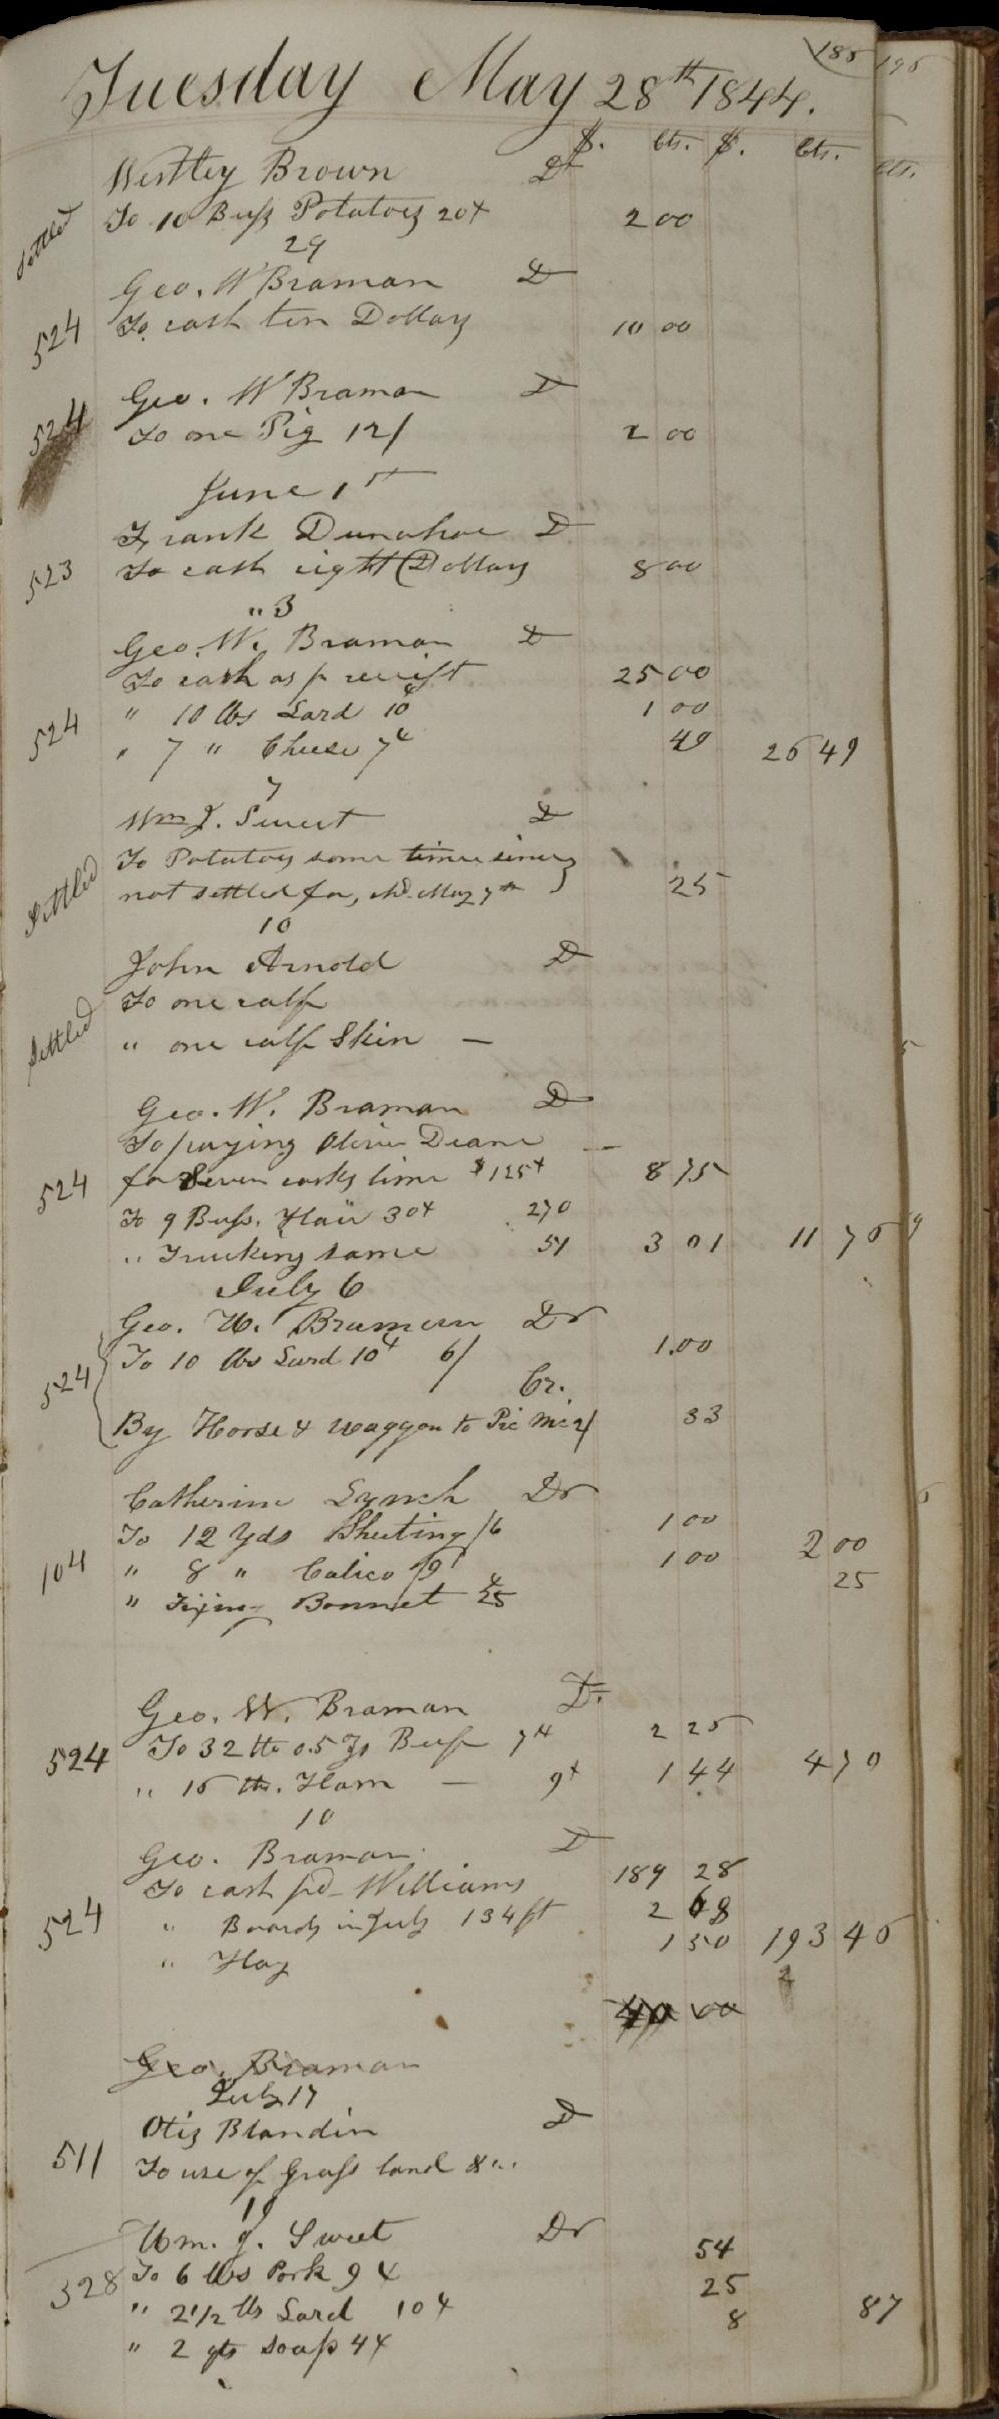 185
Tuesday May 28th 1844.
$. Cts. $. Cts.
Westley Brown Dr
Settled To 10 Bush Potatoes 20¢ 2 00
29
Geo. W Braman Dr
524 To cash ten Dollars 10 00
Geo. W Braman Dr
524 To one Pig 12/ 2 00
June 1st
Frank Dunahoe Dr
523 To cash eight Dollars 8 00
" 3
Geo. W. Braman Dr
To cash as pr receipt 25 00
" 10 lbs Lard 10¢ 1 00
524 " 7 " Cheese 7¢ 49 26 49
7
Wm J. Sweet Dr
To Potatoes some time since
Settled not settled for, May 7th 25
10
John Arnold Dr
To one calf
Settled " one calf Skin —
Geo. W. Braman Dr
To paying Oliver Deane —
524 for Seven casks lime $1 25¢ 8 75
To 9 Bush. Hair 30¢ 270
" Trucking same 51 3 01 11 76
July 6
Geo. W. Braman Dr
524 To 10 lbs Lard 10¢ 6/ 1.00
Cr.
By Horse & Waggon to Pic Nic 2/ 33
Catherine Lynch Dr
To 12 Yds Sheeting /6 1 00
104 " 8 " Calico /9 1 00 2 00
" Fixing Bonnet 25 25
Geo. W. Braman Dr.
524 To 32 lb Beef 7¢ 2 25
" 16 lb. Ham — 9¢ 1 44 4 70
10
Geo. Braman Dr
To cash pd Williams 189 28
524 " Boards in July 134 ft 2 68
" Hay 1 50 193 46
40 00
Geo. Braman
July 17
Otis Blandin Dr
511 To use of Grass land
19
Wm. J. Sweet Dr
328 To 6 lbs Pork 9¢ 54
" 2 1/2 lb Lard 10¢ 25
" 2 qts soap 4¢ 8 87